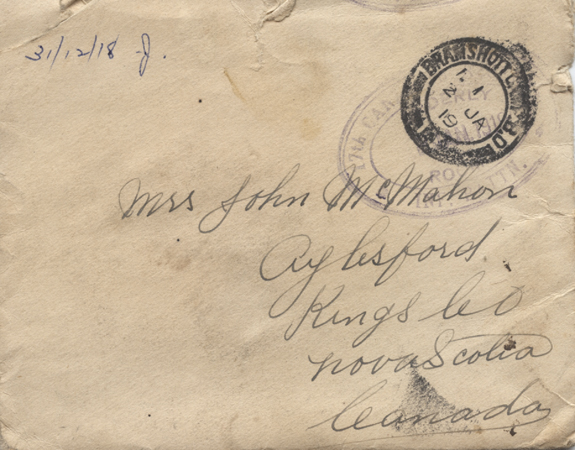 31/12/18 J.
BRAMSHOTT C.
2 JA
19
17th CAN
Mrs John McMahon
Aylesford
Kings Co
Nova Scotia
Canada